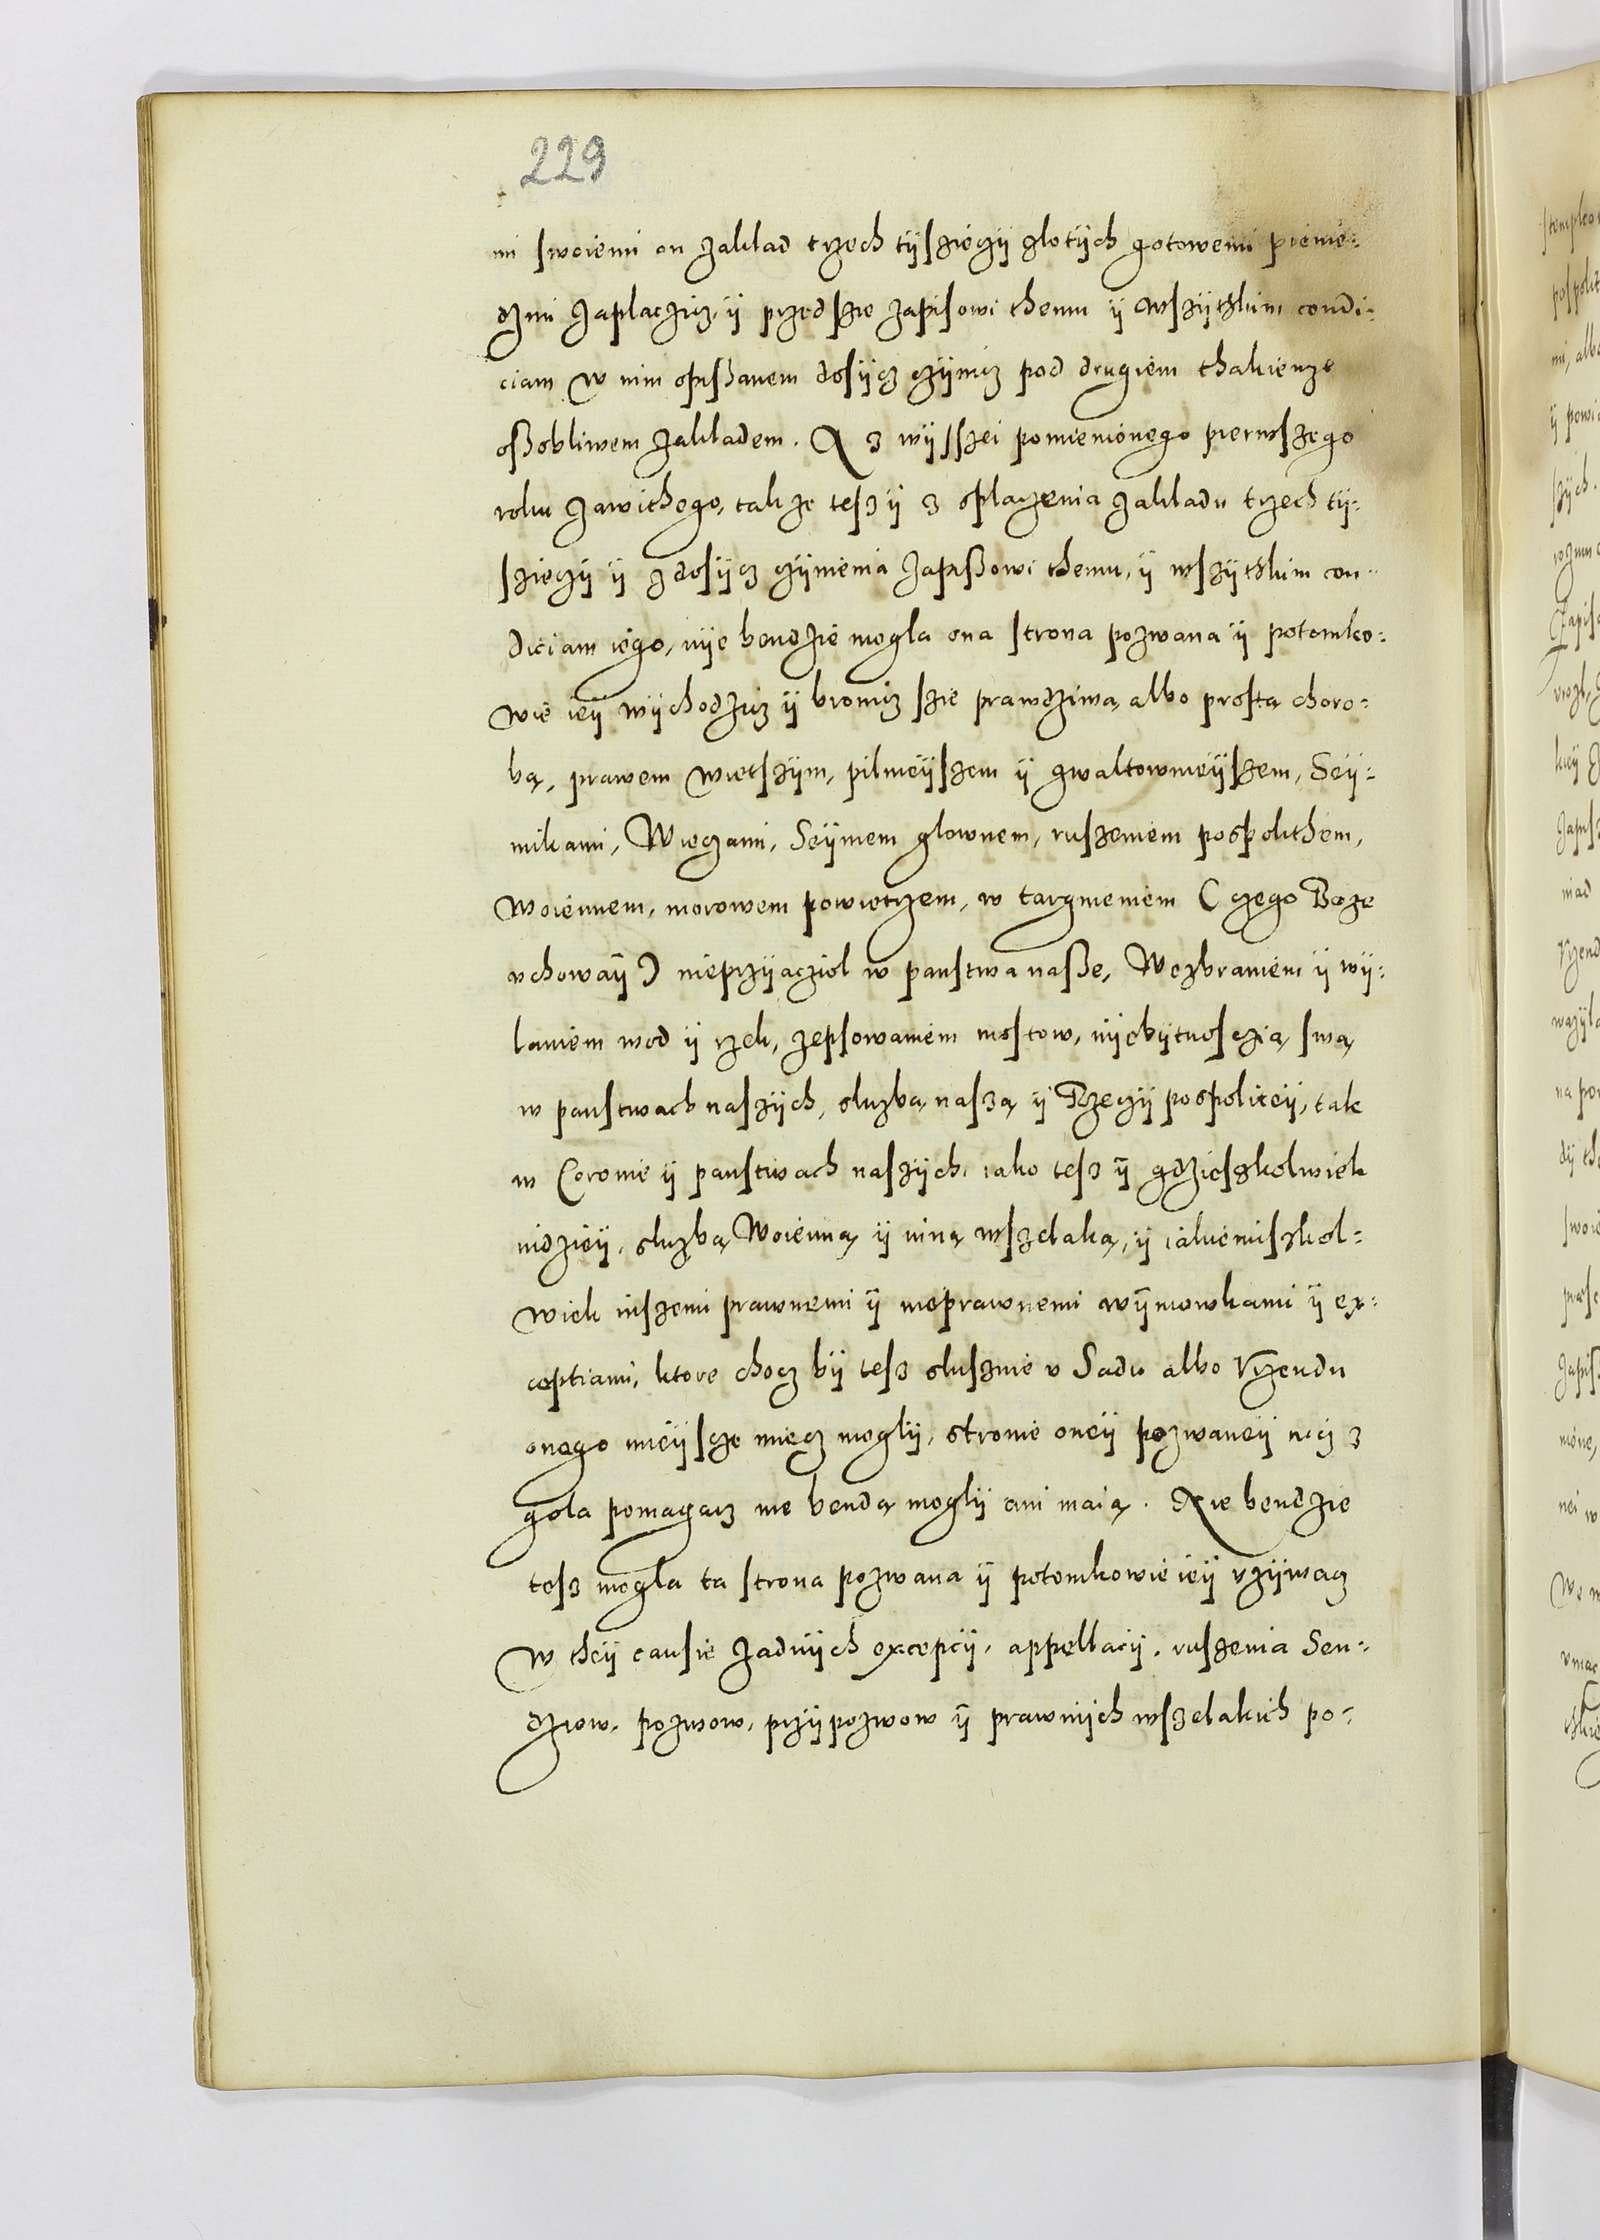 229
mi swoiemi on zaklad trzech tÿsziączÿ zlotÿch gotowemi pienię-
dzmi zaplaczicz ÿ przedszie zapisowi themu ÿ wszÿtzkim condi-
ciam w nim opißanem dosÿcz czÿnicz pod drugiem thakiemze
oßobliwem zakladem. A z wÿsszei pomienionego pierwszego
roku zawithego, takze tesz ÿ z oplaczenia zakladu trzech tÿ-
sziączÿ ÿ z dosÿcz czÿnienia zapißowi themu, ÿ wszÿtzkim con-
diciam iego, nÿe bendzie mogla ona strona pozwana ÿ potomko-
wie ieÿ wÿchodzicz ÿ bronicz szie prawdziwą albo prostą choro-
bą, prawem wietszÿm, pilnieÿszem ÿ gwaltownieÿszem, Seÿ-
mikami, Wieczami, Seÿmem glownem, ruszeniem pospolithem,
Woiennem, morowem powietrzem, w targnieniem (czego Boze
uchowaÿ) nieprzÿacziol w panstwa naße, Wezbraniem ÿ wÿ-
laniem wod ÿ rzek, zepsowaniem mostow, nÿebÿtnosczią swą
w panstwach naszÿch, sluzbą naszą ÿ Rzeczÿ pospoliteÿ, tak
w Coronie ÿ panstwach naszÿch, iako tesz ÿ gdzieszkolwiek
indzieÿ, sluzbą Woienną ÿ inną wszelaką, ÿ iakiemiszkol-
wiek inszemi prawnemi ÿ nieprawnemi wÿmowkami ÿ ex-
ceptiami, ktore chocz bÿ tesz slusznie v Sadu albo Vrzendu
onego mieÿscze miecz moglÿ, stronie oneÿ pozwaneÿ nicz z
gola pomagacz nie bendą moglÿ ani maią. Nie bendzie
tesz mogla ta strona pozwana ÿ potomkowie ieÿ vzÿwacz
W theÿ causie zadnÿch excepcÿ, appellacÿ, ruszenia Sen-
dziow, pozwow, przÿpozwow ÿ prawnÿch wszelakich po-